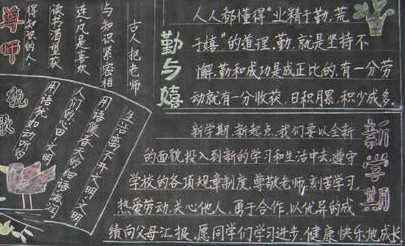 尊师
得知识的人
读书渴望获
连凡是喜欢
与知识紧密相
古人把老师
勤与嬉
人人都懂得“业精于勤，荒
于嬉”的道理。勤，就是坚持不
懈，勤和成功是成正比的，有一分劳
动就有一分收获，日积月累，积少成多。
生活离不开文明，文明
人们的心田，文明
新学期
新学期，新起点，我们要以全新
的面貌投入到新的学习和生活中去，遵守
学校的各项规章制度，尊敬老师，刻苦学习，
热爱劳动，关心他人，勇于合作，以优异的成
绩向父母汇报，愿同学们学习进步，健康快乐地成长